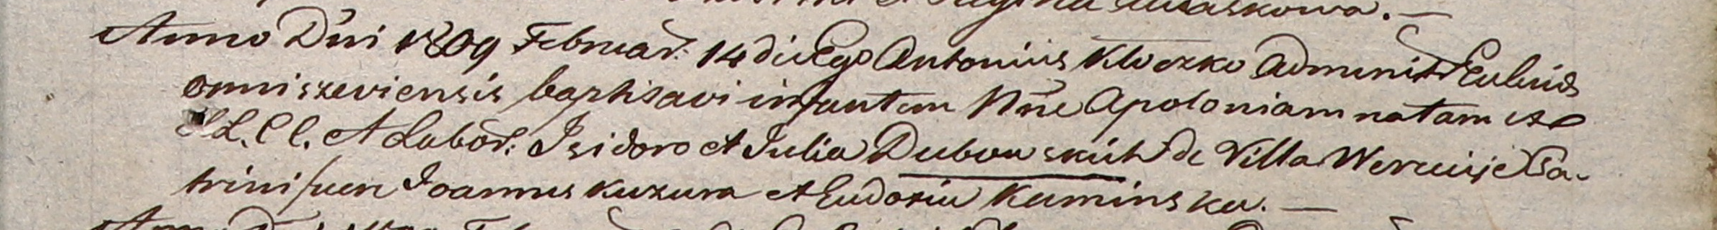 Regina
Anno Dni 1809 Februar. 14 die Ego Antonius Kloczko Administr Eccl
omniszeviensis baptisavi infantem Nne Apoloniam natam ex
LL. CC. et Labor: Isidoro et Julia Dubowskich de Villa Pa-
trini fuer Joannes Kuzura et Eudoxia Kaminska. —
Anno